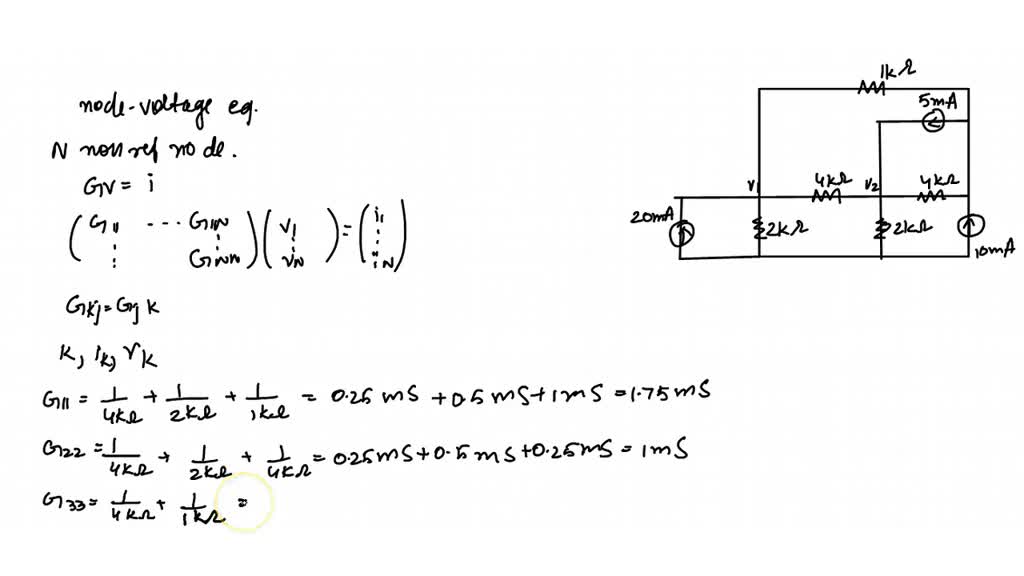 node-voltage eq.
N non ref node.
GV = i
(G11 ... G1N) (V1) = (i1)
(⋮ ⋮) (⋮) (⋮)
(⋮ GNN) (VN) (iN)
Gkj = Gjk
k, ik, Vk
G11 = 1/4kΩ + 1/2kΩ + 1/1kΩ = 0.25 mS + 0.5 mS + 1 mS = 1.75 mS
G22 = 1/4kΩ + 1/2kΩ + 1/4kΩ = 0.25 mS + 0.5 mS + 0.25 mS = 1 mS
G33 = 1/4kΩ + 1/1kΩ =
1kΩ
5mA
V1 4kΩ V2 4kΩ
20mA 2kΩ 2kΩ
10mA